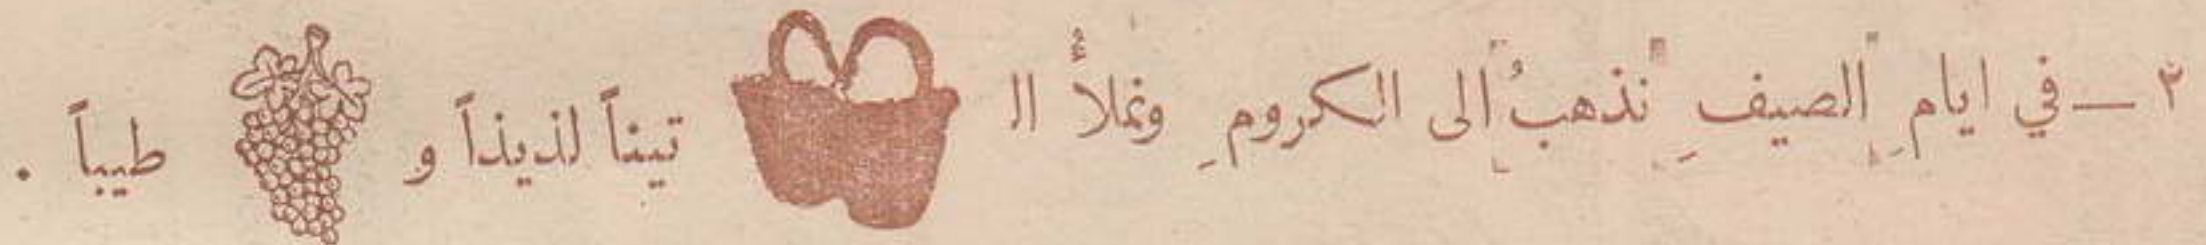 ٢ — في ايام ِ الصيف ِ نذهبُ الى الكروم ِ ونملأُ ال تيناً لذيذاً و طيباً .